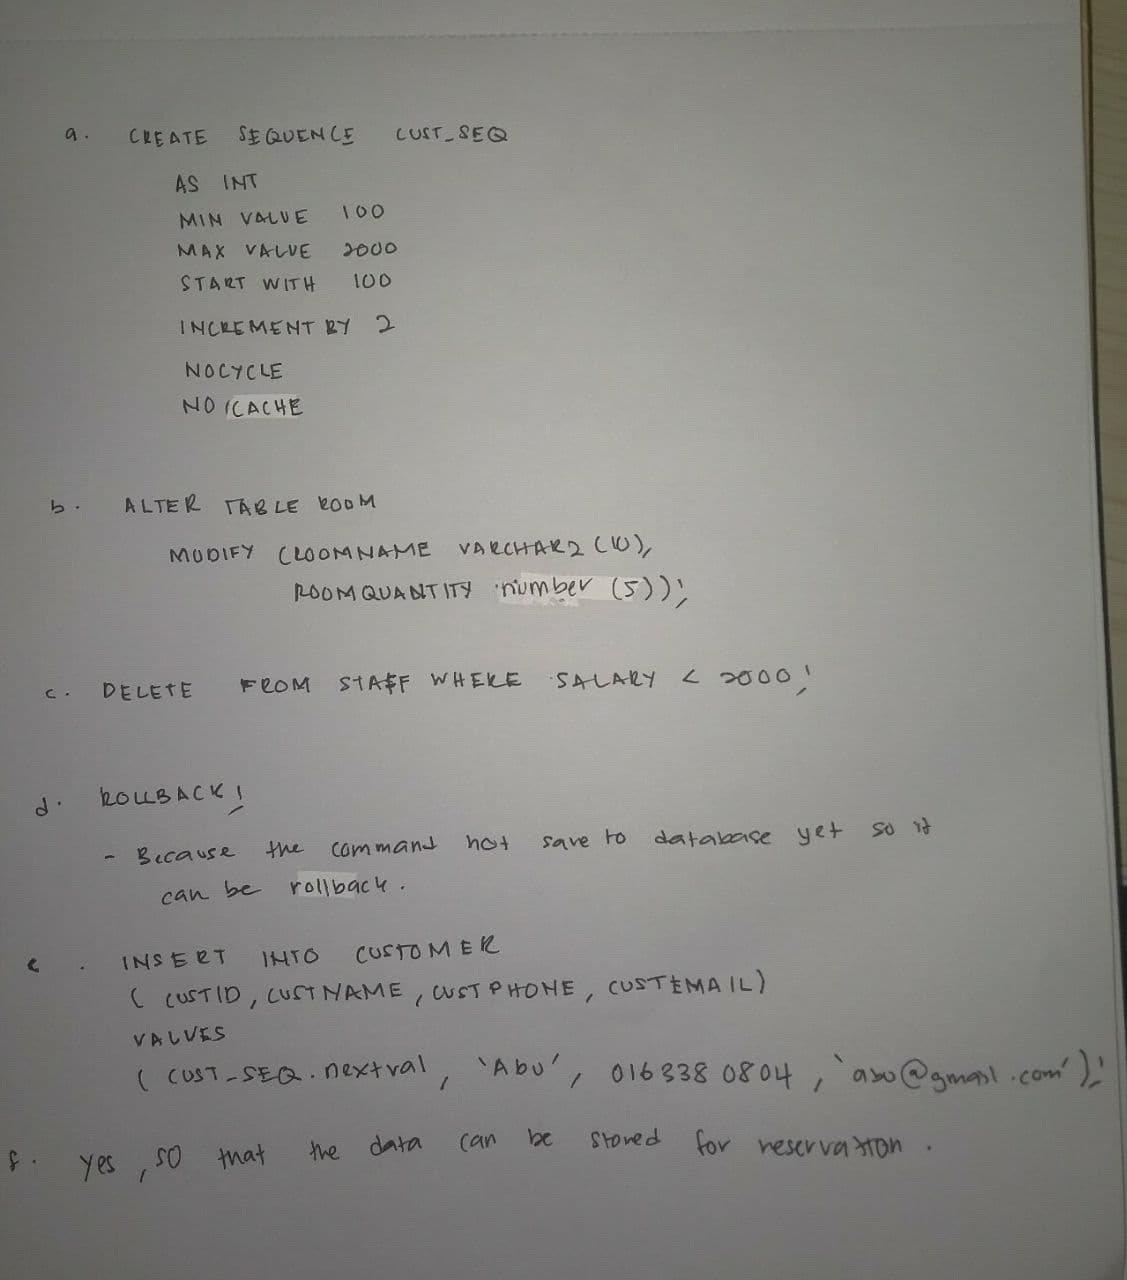 a. CREATE SEQUENCE CUST_SEQ
AS INT
MIN VALUE 100
MAX VALUE 2000
START WITH 100
INCREMENT BY 2
NOCYCLE
NO CACHE
b. ALTER TABLE ROOM
MODIFY (ROOMNAME VARCHAR2 (10),
ROOMQUANTITY number (5));
c. DELETE FROM STAFF WHERE SALARY < 2000;
d. ROLLBACK;
- Because the command not save to database yet so it
can be rollback.
e. INSERT INTO CUSTOMER
( CUSTID, CUSTNAME, CUSTPHONE, CUSTEMAIL)
VALUES
( CUST_SEQ.nextval, 'Abu', 016 338 0804, 'abu@gmail.com');
f. yes, so that the data can be stored for reservation.